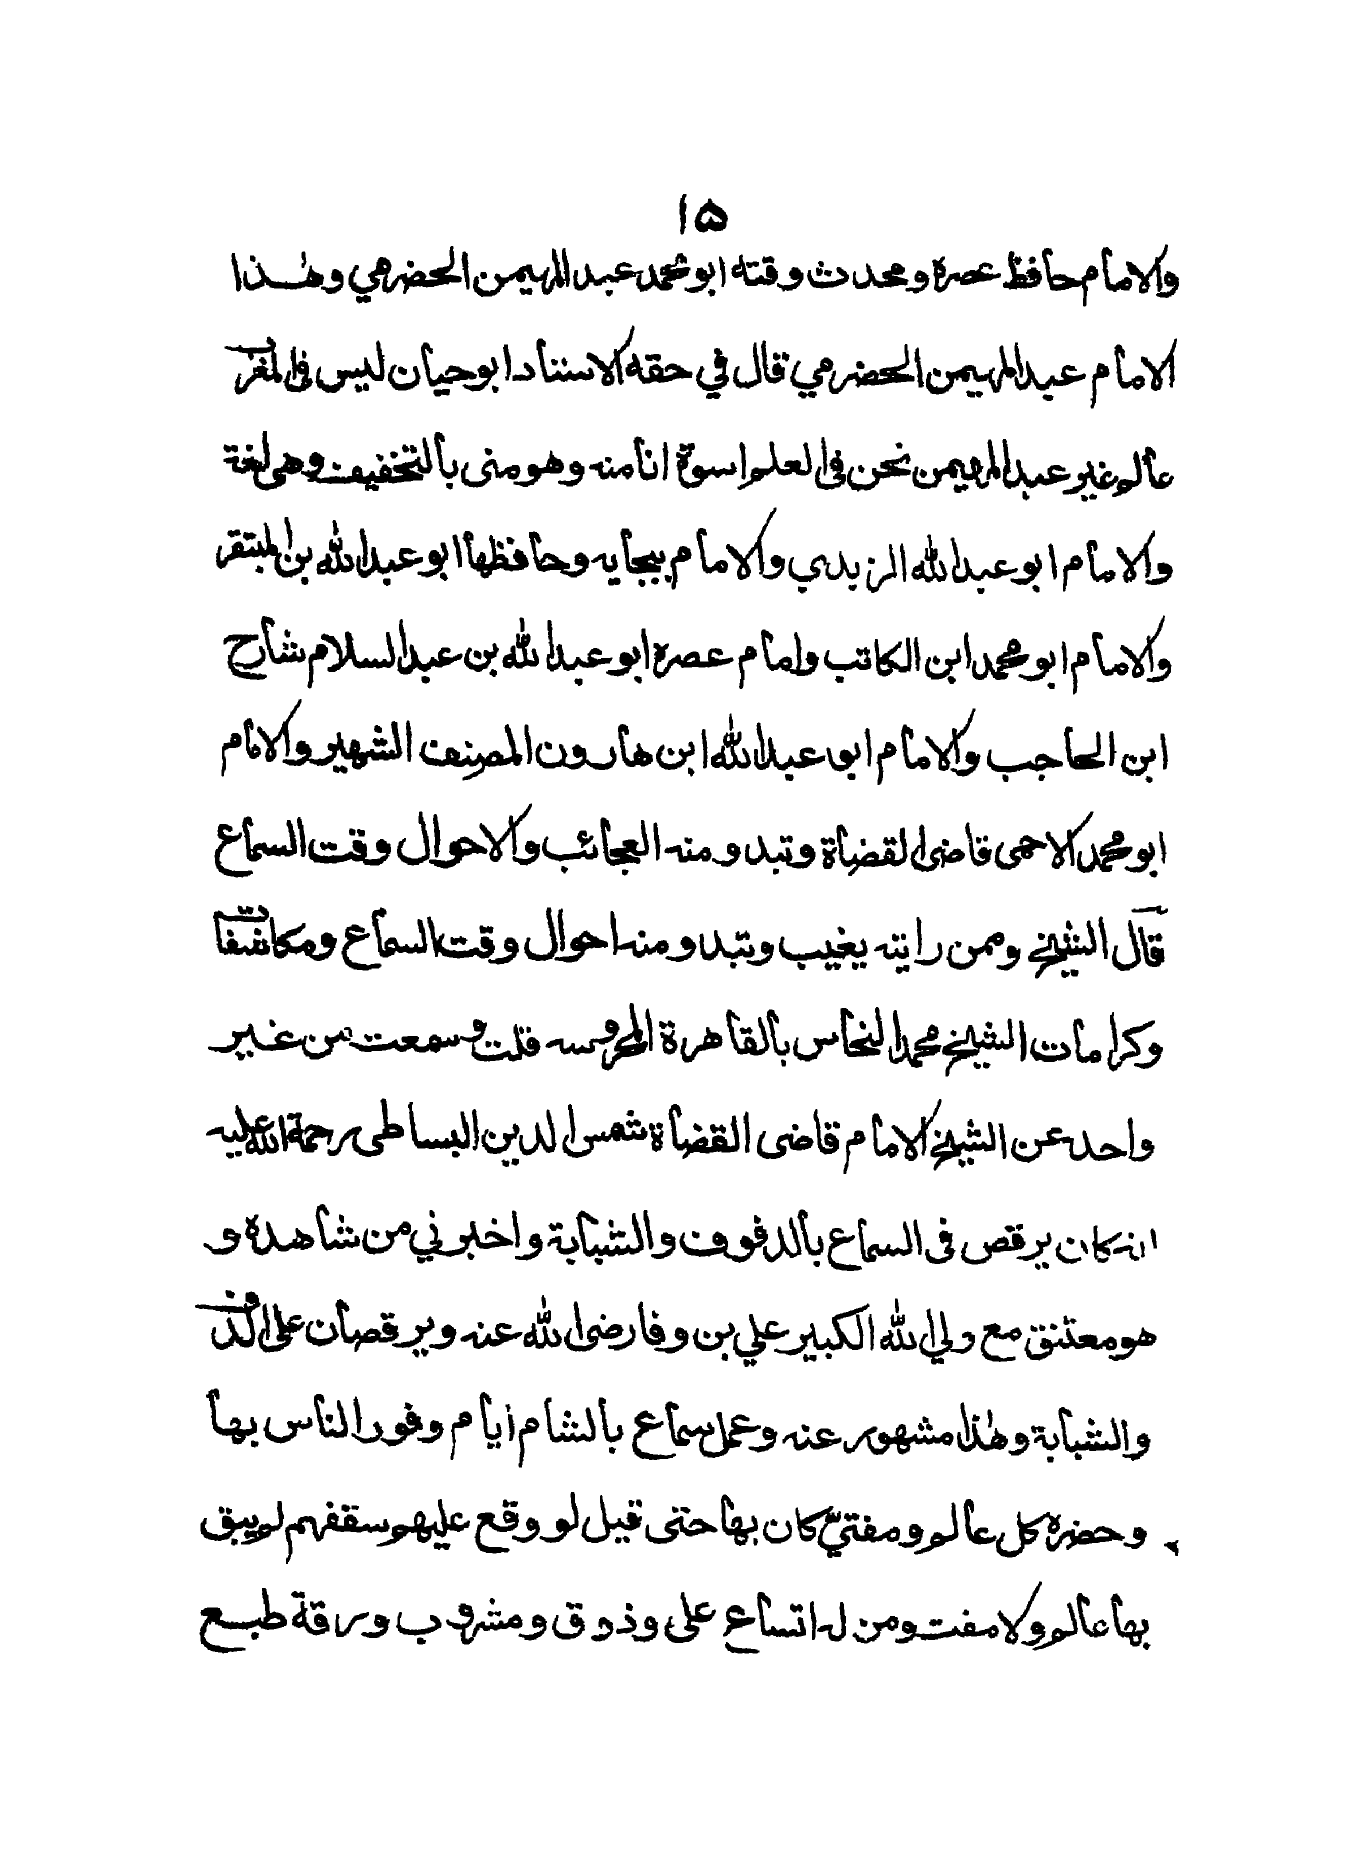 ١٥
والامام حافظ عصره ومحدث وقته ابو محمد عبد المهيمن الحضرمي وهٰذا
الامام عبد المهيمن الحضرمي قال في حقه الاستناد ابو حيان ليس في المغرب
عالم غير عبد المهيمن نحن في العلم اسوة انا منه وهو مني بالتخفيف وهي لغة
والامام ابو عبد الله الزبدي والامام ببجايه وحافظها ابو عبد الله بن
والامام ابو محمد ابن الكاتب وامام عصره ابو عبد الله بن عبد السلام شارح
ابن الحاجب والامام ابو عبد الله ابن هارون المصنف الشهير والامام
ابو محمد الاجمى قاضي القضاة وتبدو منه العجائب والاحوال وقت السماع
قال الشيخ وممن رايته يغيب وتبدو منه احوال وقت السماع ومكاشفات
وكرامات الشيخ محمد النحاس بالقاهرة المحروسه قلت وسمعت من غير
واحد عن الشيخ الامام قاضى القضاة شمس الدين البساطى رحمة الله عليه
انه كان يرقص في السماع بالدفوف والشبابة واخبرني من شاهده و
هو معتنق مع ولي الله الكبير علي بن وفا رضى الله عنه ويرقصان على الدف
والشبابة وهٰذا مشهور عنه وعمل سماع بالشام أيام وفور الناس بها
وحضره كل عالم ومفتيّ كان بها حتى قيل لو وقع عليهم سقفهم لم يبق
بها عالم ولا مفت ومن له اتساع على وذوق ومشروب ورقة طبع